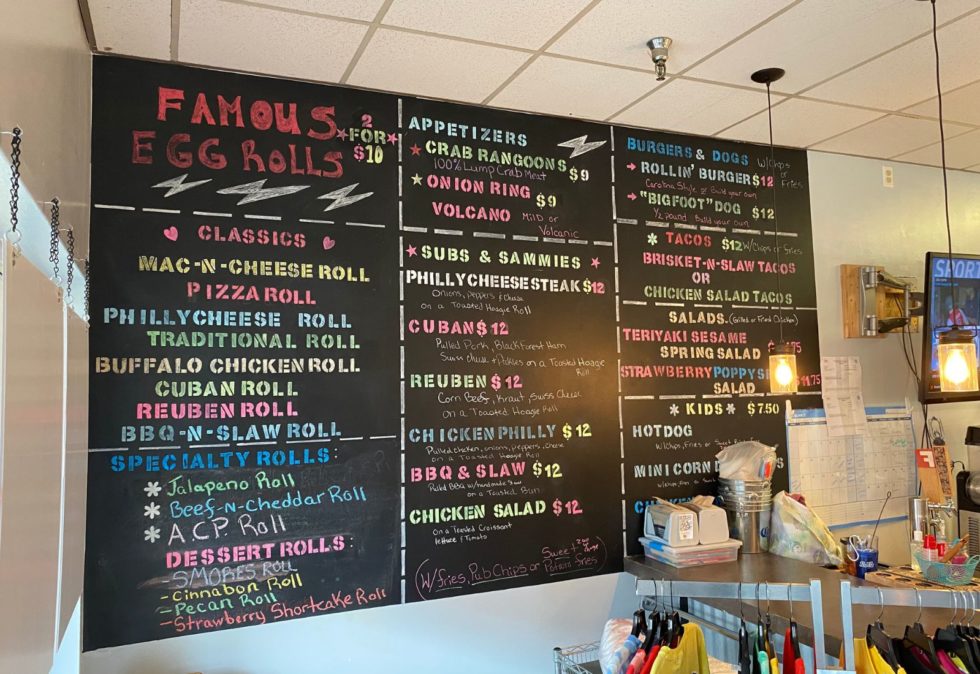 FAMOUS
EGG ROLLS
2
FOR
$10
CLASSICS
MAC-N-CHEESE ROLL
PIZZA ROLL
PHILLYCHEESE ROLL
TRADITIONAL ROLL
BUFFALO CHICKEN ROLL
CUBAN ROLL
REUBEN ROLL
BBQ-N-SLAW ROLL
SPECIALTY ROLLS:
Jalapeno Roll
Beef-N-Cheddar Roll
A.C.P. Roll
DESSERT ROLLS:
- SMORES ROLL
- Cinnabon Roll
- Pecan Roll
- Strawberry Shortcake Roll
APPETIZERS
CRAB RANGOONS $9
100% Lump Crab Meat
ONION RING $9
VOLCANO Mild or
Volcanic
SUBS & SAMMIES
PHILLY CHEESE STEAK $12
Onions, Peppers & Cheese
on a Toasted Hoagie Roll
CUBAN $12
Pulled Pork, Black Forest Ham
Swiss Cheese + Pickles on a Toasted Hoagie
Roll
REUBEN $12
Corn Beef, Kraut, Swiss Cheese
on a Toasted Hoagie Roll
CHICKEN PHILLY $12
Pulled chicken, onions, peppers, cheese
on a Toasted Hoagie Roll
BBQ & SLAW $12
Pulled BBQ w/ handmade Slaw
on a Toasted Bun
CHICKEN SALAD $12
on a Toasted Croissant
lettuce & Tomato
(W/ fries, Pub Chips or Sweet Potato fries)
BURGERS & DOGS W/Chips
or Fries
ROLLIN' BURGER $12
Carolina Style or Build your own
"BIGFOOT" DOG $12
1/2 pound Build your own
TACOS $12 W/Chips or Fries
BRISKET-N-SLAW TACOS
OR
CHICKEN SALAD TACOS
SALADS. (Grilled or Fried Chicken)
TERIYAKI SESAME
SPRING SALAD
STRAWBERRY POPPY
SALAD
KIDS $7.50
HOT DOG
W/Chips, Fries or Sweet
MINI CORN
W/Chips, Fries or
SPORT
F